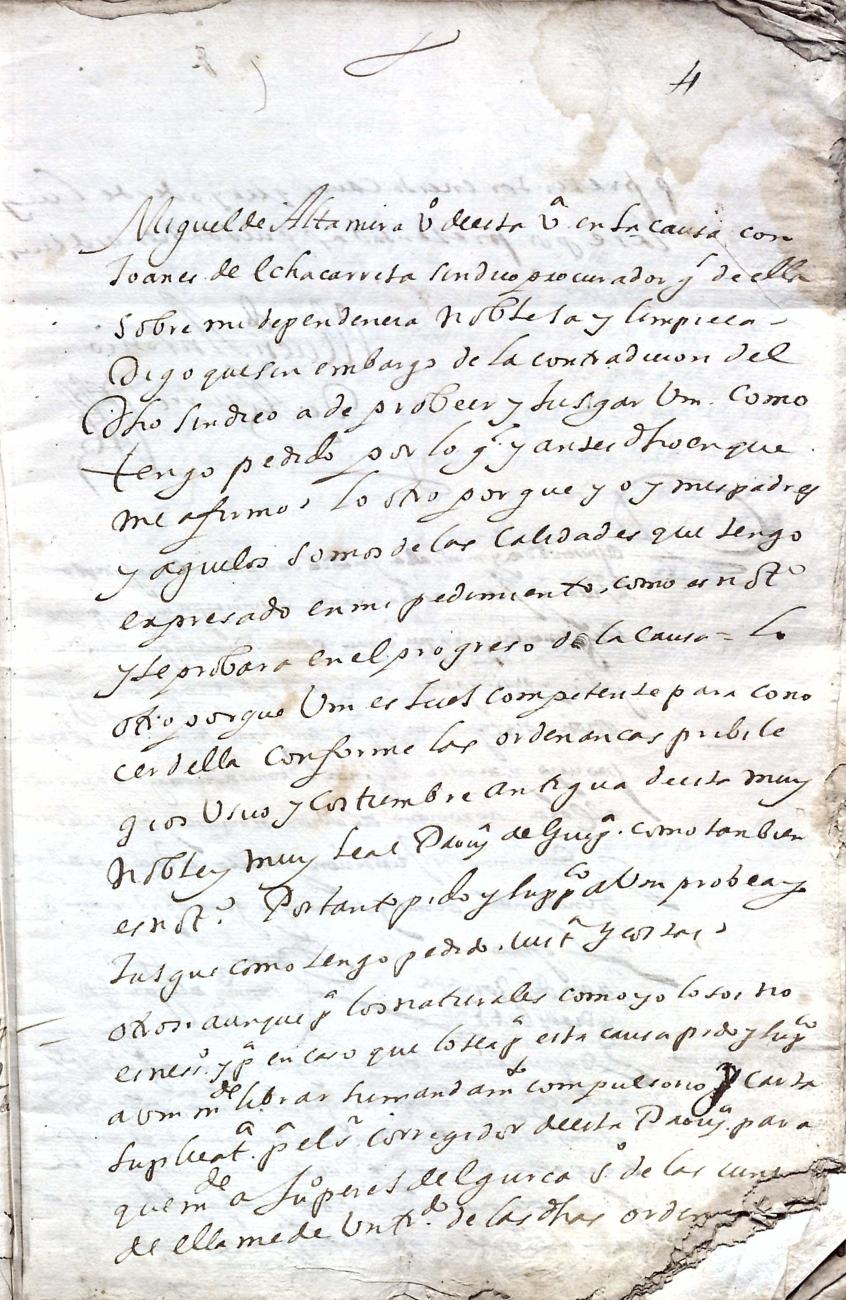 4
Miguel de Altamira vº de esta vª en la causa con
Joanes de Echacarreta sindico procurador gˡ de ella
sobre mi dependencia noblesa y limpieca =
Digo que sin embargo de la contradicion del
dho sindico a de probeer y jusgar Vm. como
tengo pedido por lo gˡ y antes dho en que
me afirmo = lo otro por que yo y mis padres
y aguelos somos de las calidades que tengo
expresado en mi pedimiento, como es notº
y se probara en el progreso de la causa = lo
otro porque Vm es jues competente para cono
cer della conforme las ordenancas pribile
gios usso y costumbre antigua de esta muy
noble y muy leal Prouª de Guipª. como tanbien
es notº. Por tanto pido y suppᶜᵒ a Vm probea y
jusgue como tengo pedido. justª y costas =
otrosi aunque pª los naturales como yo lo soi no
es nessº. y pª en caso que lo sea pª esta causa pido y supᶜᵒ
a vm mᵈᵉ librar su mandamᵗᵒ compulsorio y carta
suplicatª. pª el sʳ corregidor de esta Prouª. para
que mᵈᵉ a Juº peres de Elgurca sº de las
de ella me de un trᵈᵒ. de las dhas